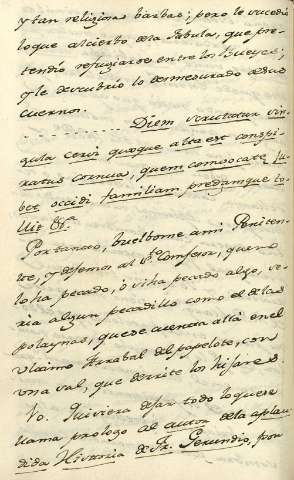 y tan religiosas barbas; pero le sucedió
lo que al cierto de la Fabula, que pre-
tendió refugiarse entre los Bueyes;
y le descubrio lo desmesurado de sus
cuernos.
. . . . . . . . . . . . Diem scrutatur sin-
gula cervi quoque alta est conspi-
catus cornua, quem convocate ju-
bet occidi familiam prædamque to-
llit &a.
Por tanto, buelbome a mi Peniten-
te, y dejemos al Sr. Confesor, que no
lo ha pecado, o si ha pecado algo, se-
ria algun pecadillo como el de las
polaynas, que se cuenta allá en el
ultimo Arrabal del papelote, con
una sal, que derrite los hijares.
Yo. Quisiera dejar todo lo que se
llama prologo al autor de la aplau-
dida Historia de Fr. Gerundio, por